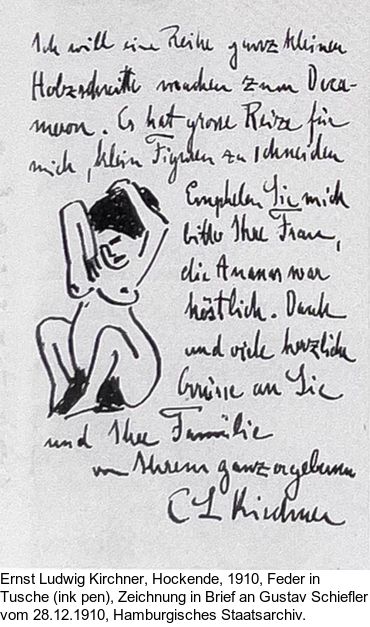 Ich will eine Reihe ganz kleiner
Holzschnitte machen zum Deca-
meron. Es hat grosse Reize für
mich, klein Figuren zu schneiden
Empfelen Sie mich
bitte Ihre Frau,
die Ananas war
köstlich. Dank
und viele herzliche
Grüsse an Sie
und Ihre Familie
von Ihrem ganz ergebenen
E L Kirchner
Ernst Ludwig Kirchner, Hockende, 1910, Feder in
Tusche (ink pen), Zeichnung in Brief an Gustav Schiefler
vom 28.12.1910, Hamburgisches Staatsarchiv.